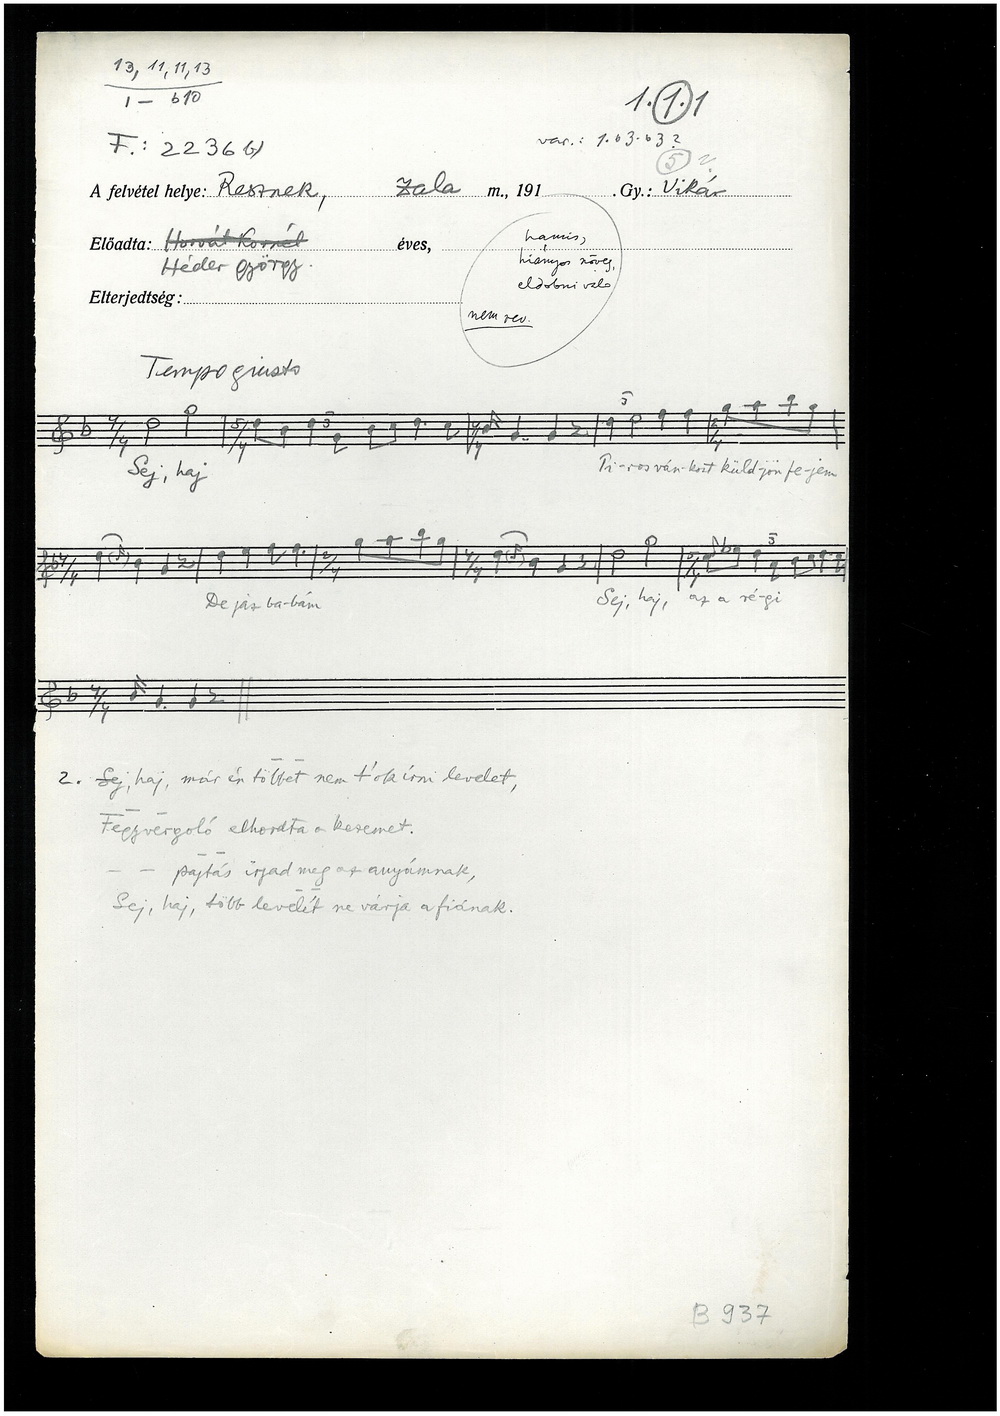 13, 11, 11, 13
1 – b10
1. 1. 1
F.: 2236 b)
var.: 1.03.03?
5
A felvétel helye: Resznek, Zala m., 191 . Gy.: Vikár
Előadta: Horvát Kornél éves,
Héder György.
hamis,
hiányos szöveg,
eldobni való
Elterjedtség:
nem rev.
Tempo giusto
Sej, haj Pi-ros ván-kost küld-jön fe-jem
De jás ba-bám Sej, haj, az a ré-gi
2. Sej, haj, már én többet nem t'ok írni levelet,
Fegyvergoló elhordta a kezemet.
– – pajtás írjad meg az anyámnak,
Sej, haj, több levelit ne várja a fiának.
B 937